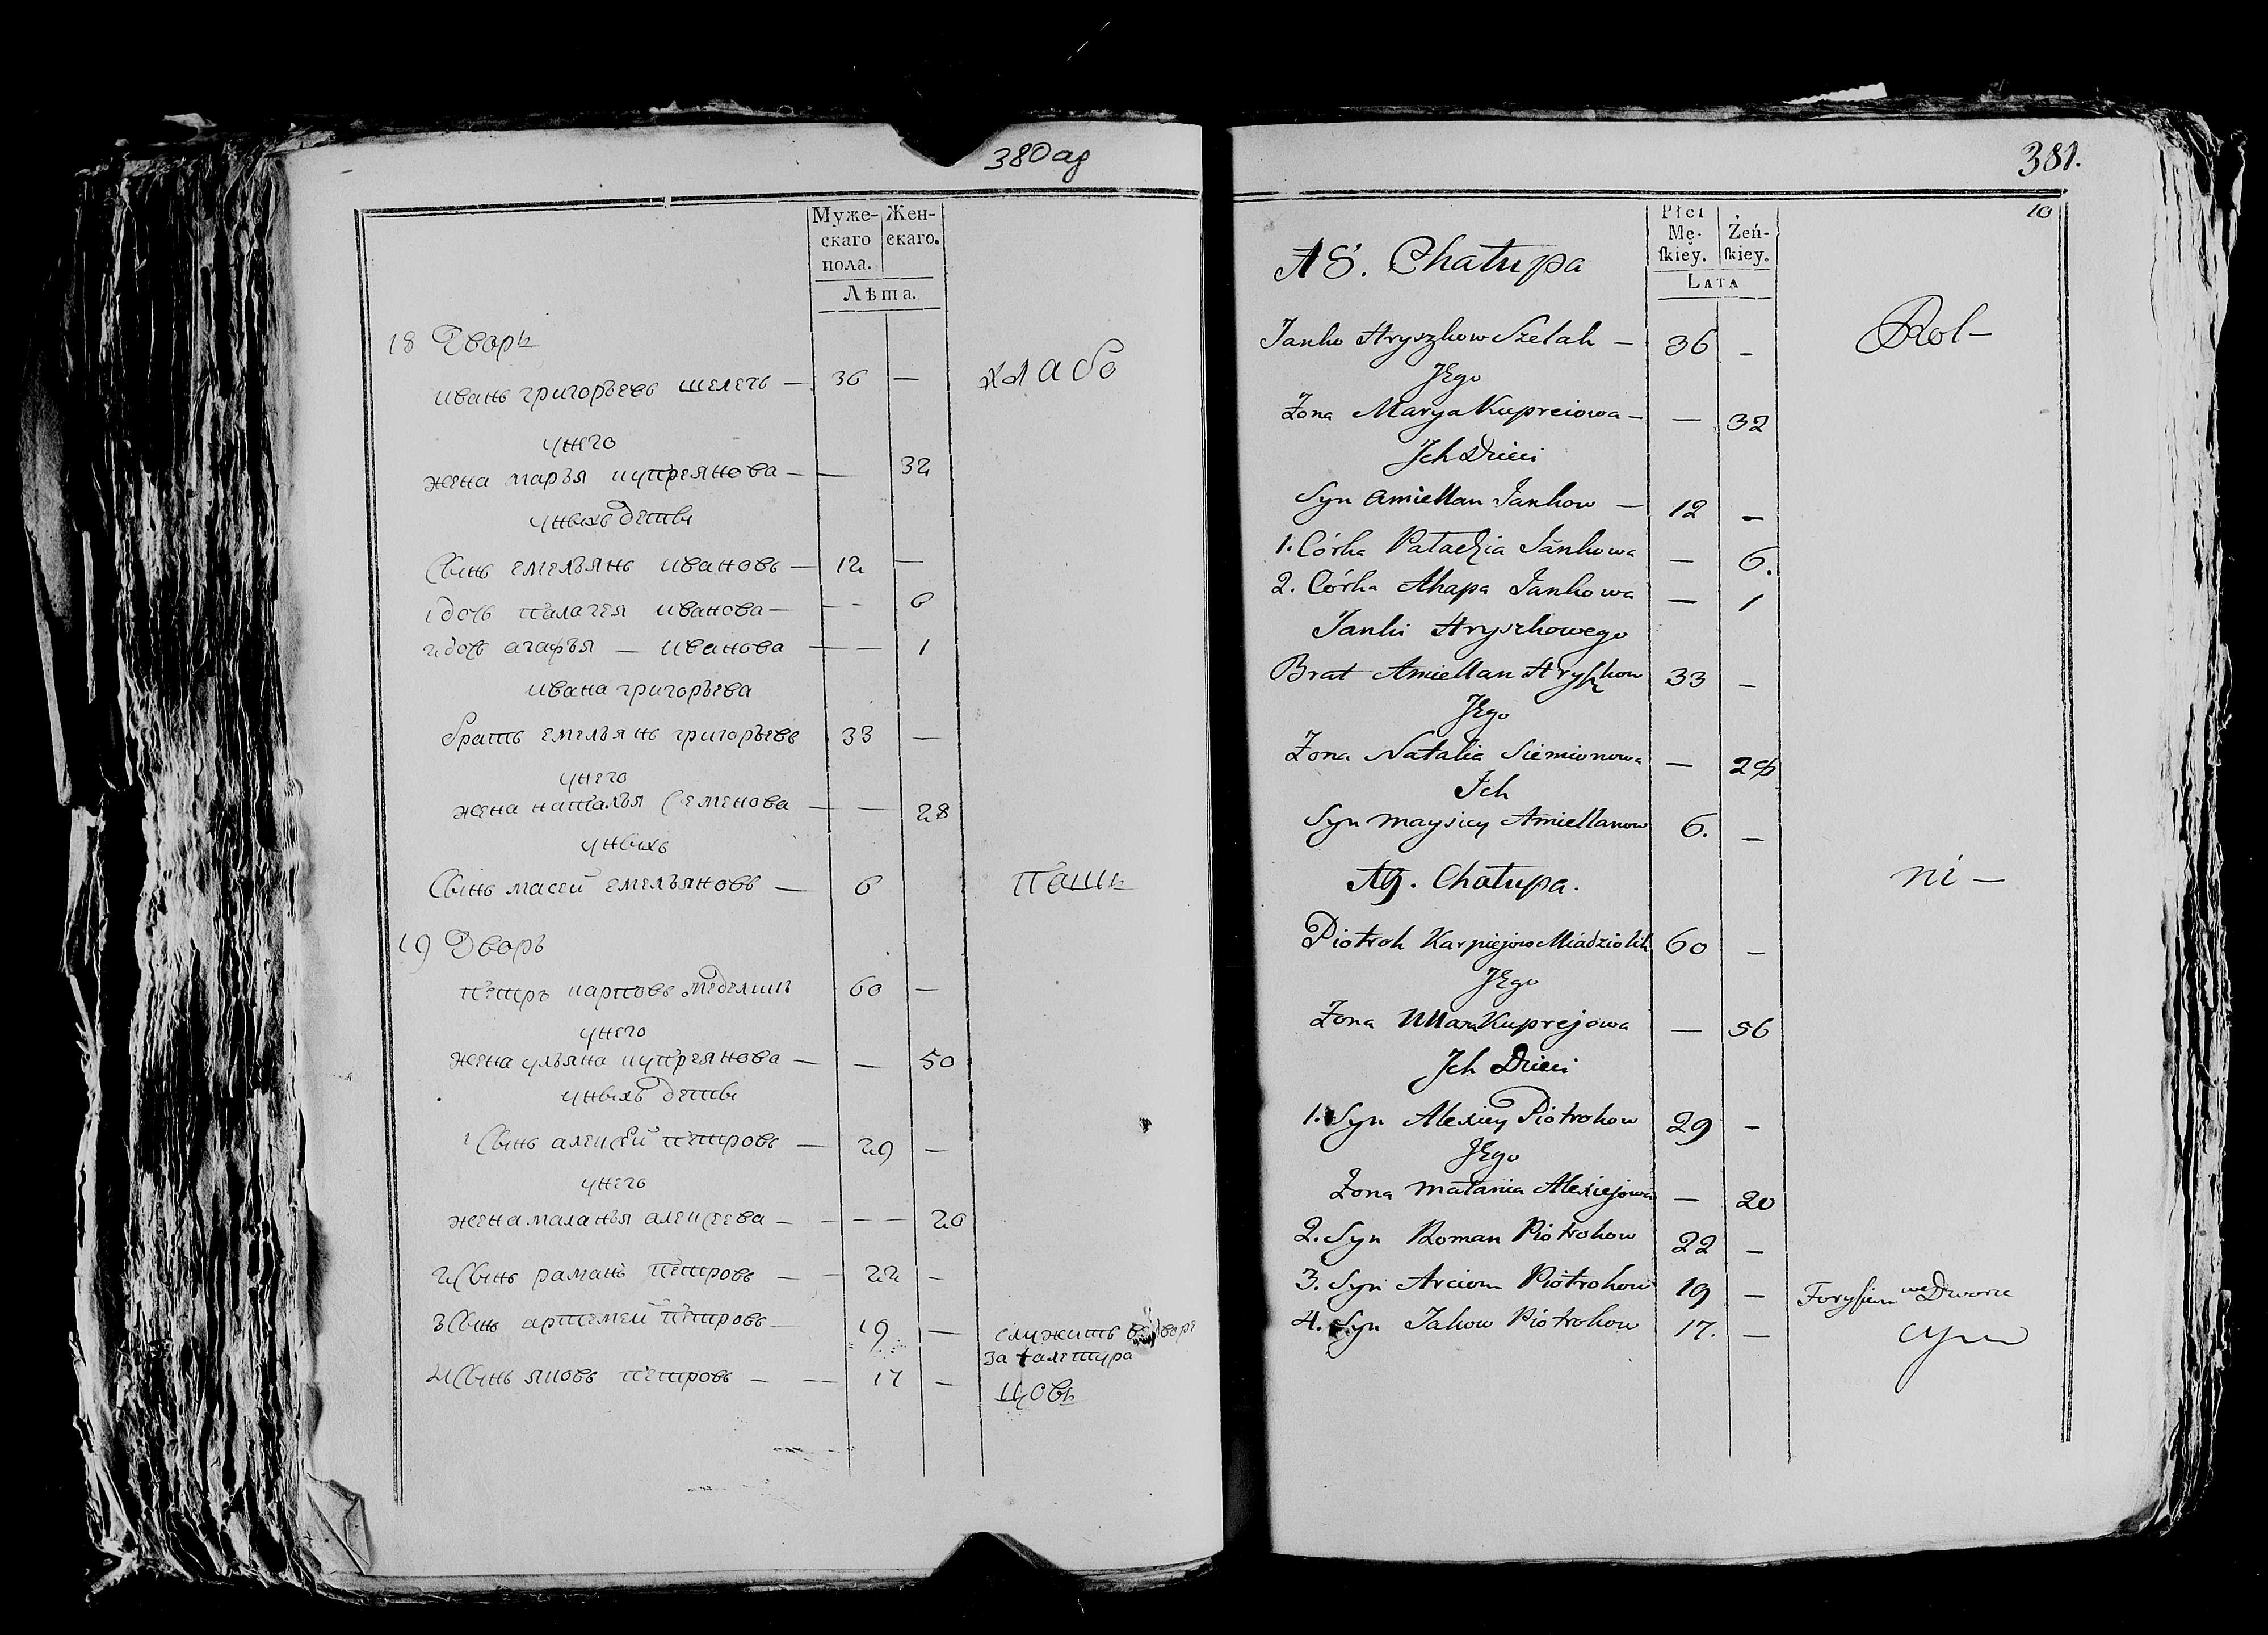 380 ад
Муже- Жен-
скаго скаго.
пола.
Лѣта.
18 Дворъ
иванъ григорьевъ шелегъ — 36 — хлѣбо
унего
жена марья купреянова — — 32
уныхъ дѣтѣи
Сынъ емельянъ ивановъ — 12 —
1 дочь палагея иванова — — 6
2 дочь агафья — иванова — — 1
ивана григорьева
братъ емельянъ григорьевъ 33 —
унего
жена наталья семенова — — 28
уныхъ
Сынъ масей емельяновъ — 6 паши
19 Дворъ
петръ карповъ 60 —
унего
жена ульяна купреянова — — 50
уныхъ дѣтѣи
1 Сынъ алексей петровъ — 29 —
унего
жена маланья алексеева — — — 20
2 Сынъ раманъ петровъ — — 22 —
3 Сынъ артемей петровъ — 19 — служитъ
за
4 Сынъ яковъ петровъ — — 17 — цовъ
381.
10
Płci
Mę- Żeń-
ſkiey. ſkiey.
LATA
18. Chałupa
Janko Hryszkow Szelah — 36 — Rol —
JEgo
Żona Marya Kupreiowa — — 32
Jch Dzieci
Syn Amiellan Jankow — 12 —
1. Córka Pałachia Jankowa — 6.
2. Córka Ahapa Jankowa — 1
Janki Hryszkowego
Brat Amiellan Hryszkow 33 —
JEgo
Żona Natalia Siemionowa — 28
Jch
Syn Maysiey Amiellanow 6. —
19. Chałupa. ni —
Piotrok Karpiejow Miadziolik 60 —
JEgo
Żona Ullana Kuprejowa — 56
Jch Dzieci
1. Syn Alexiey Piotrokow 29 —
JEgo
Żona Małania Alexiejowa — 20
2. Syn Roman Piotrokow 22 —
3. Syn Arciom Piotrokow 19 — Forysiem we Dworze
4. Syn Jakow Piotrokow 17. — cy